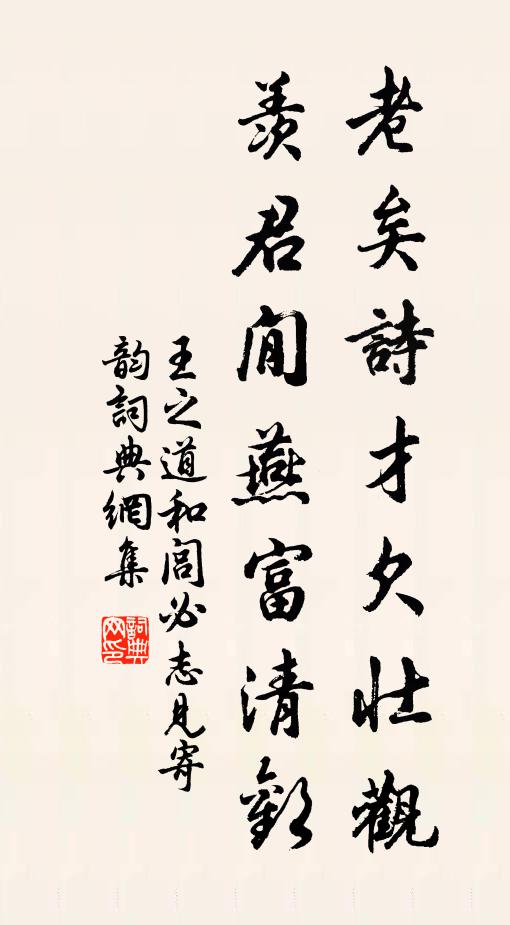 老矣詩才欠壯觀
羨君閒燕富清歡
王之道和閻必志見寄
韵詞典網集
詞典网印